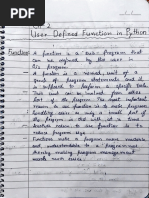 Ch-2
User Defined Function in Python
Function - A function is a Sub-Program that
can be defined by the user in
his program.
- A function is a named unit of a
group of program statements and it
is defined to perform a specific task.
- This unit can be invoked from other
part of the program. The most important
reason to use function is to make program
handling easier as only a small part of the
program is dealt with at a time.
- Another reason to use functions is to
reduce program size.
- Functions make a program more readable
and understandable to a programmer
thereby making program management
much easier.